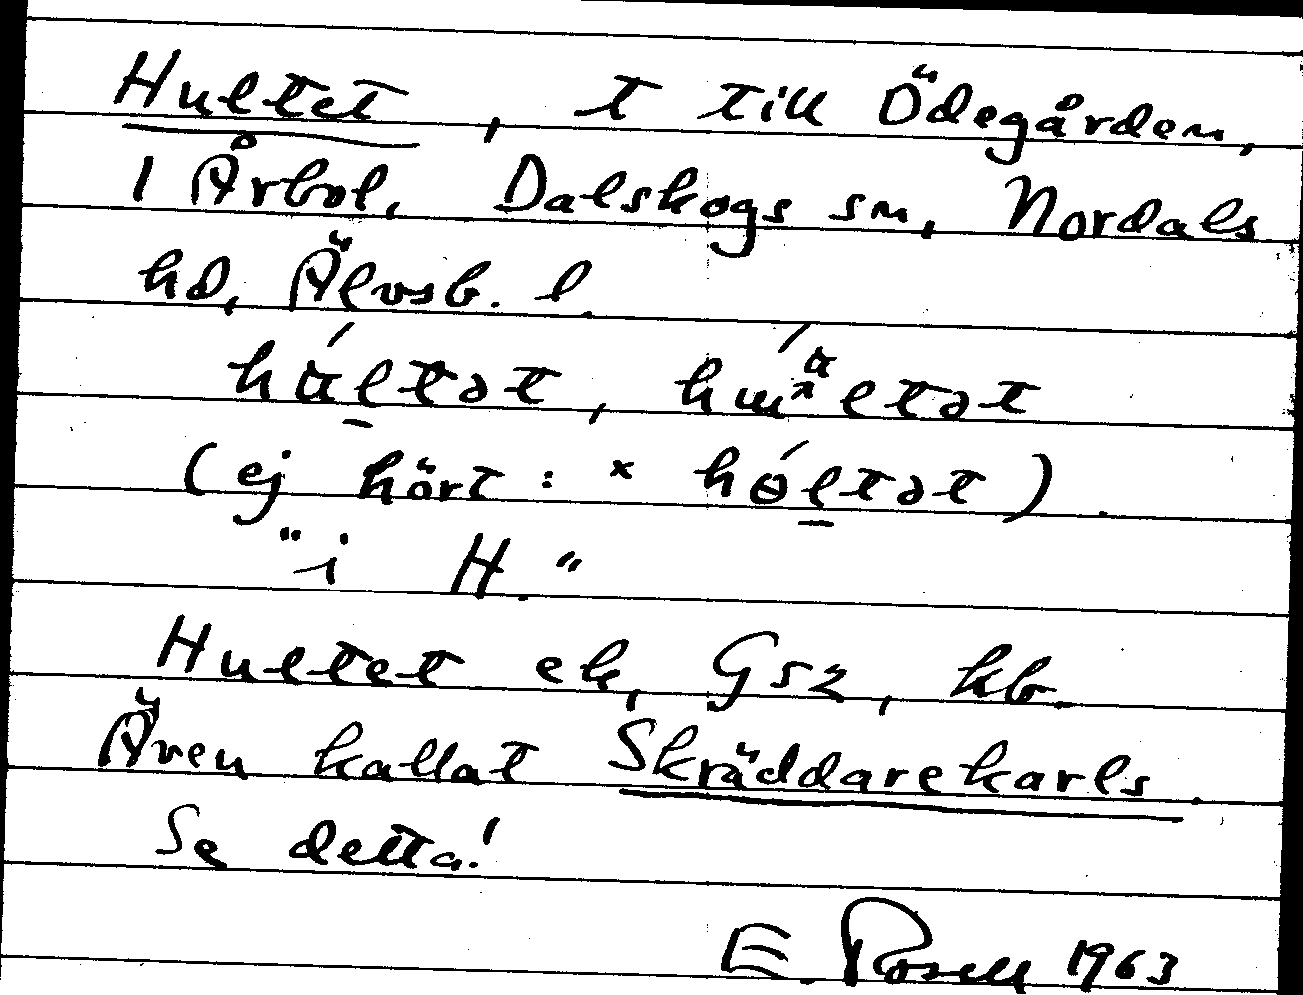 Hultet, t till Ödegården,
1 Årbol, Dalskogs sn, Nordals
hd, Älvsb. l.
(ej hört: * hө́ltət).
"i H."
Hultet ek, Gsz, kb.
Även kallat Skräddarekarls.
Se detta!
E. Rosell 1963